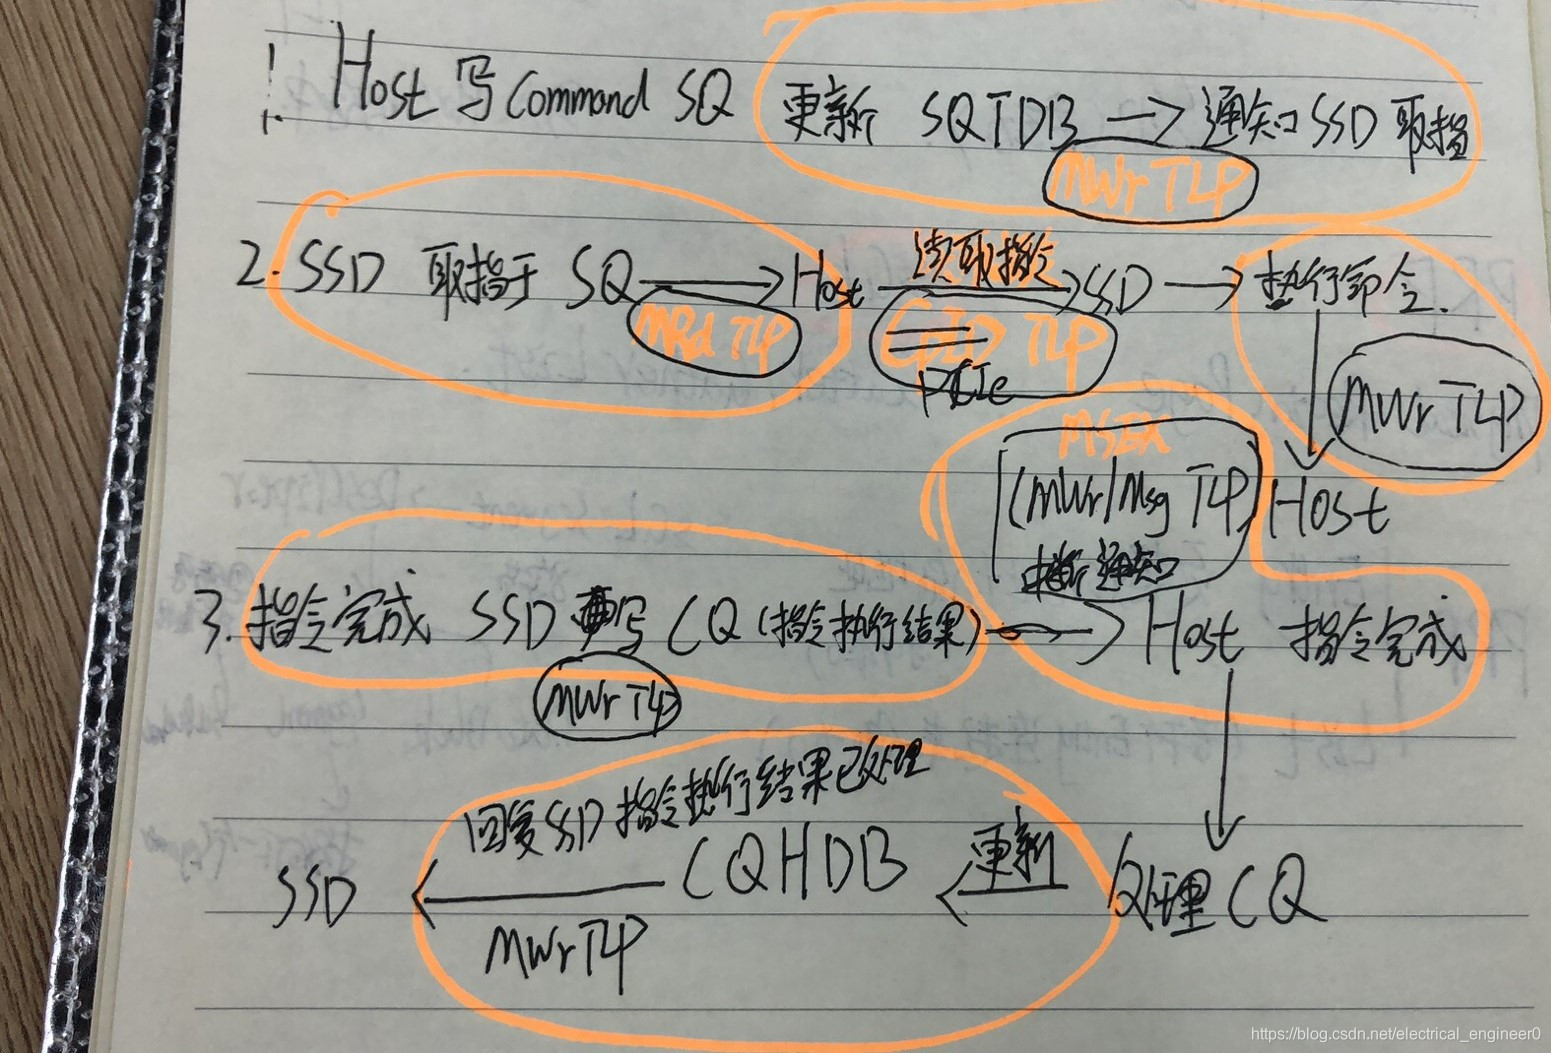 1. Host 写 Command SQ 更新 SQTDB → 通知 SSD 取指
MWr TLP
读取指令
2. SSD 取指于 SQ → Host → SSD → 执行命令.
MRd TLP CplD TLP
PCIe
MWr TLP
MSIX
(MWr/Msg TLP) Host
中断通知
3. 指令完成 SSD 写 CQ (指令执行结果) → Host 指令完成
MWr TLP
回复 SSD 指令执行结果已处理
SSD ← CQHDB ← 更新 处理 CQ
MWr TLP
https://blog.csdn.net/electrical_engineer0